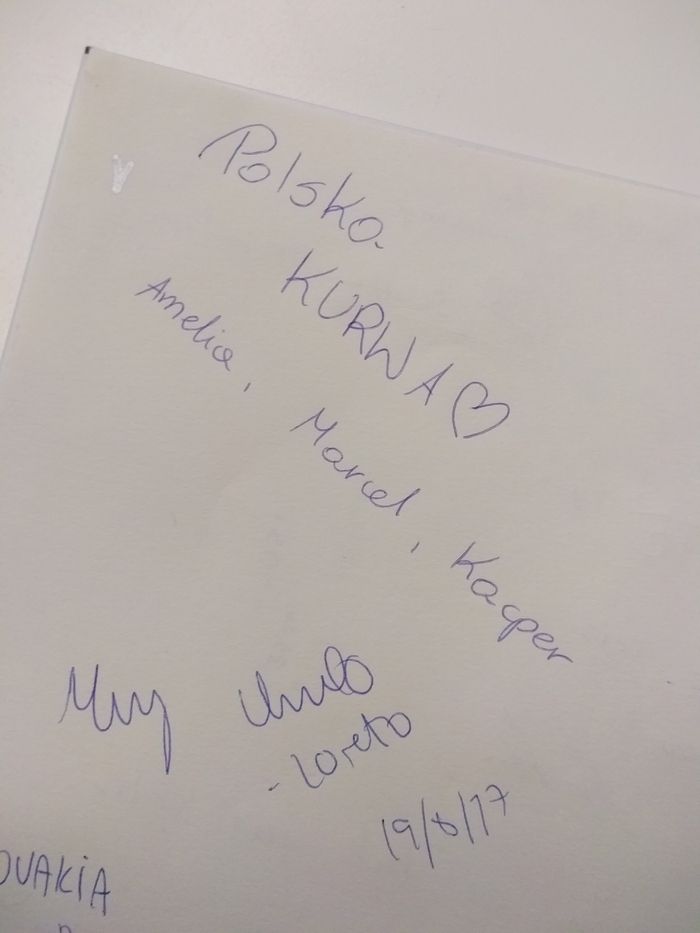 Polska
KURWA♡
Amelia, Marcel, Kacper
Muy chulo
-Loreto
19/8/17
OVAKIA